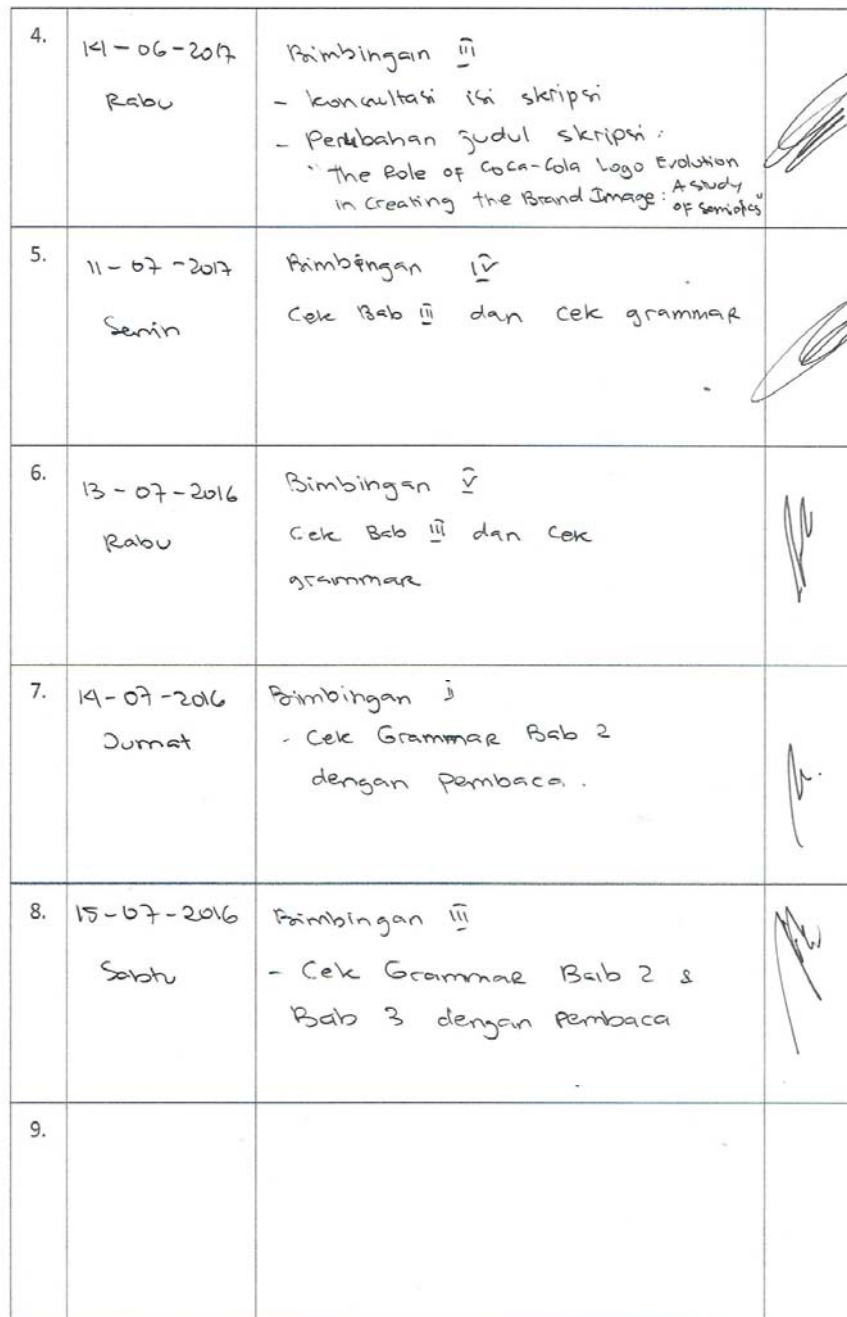 4.
14-06-2017
Rabu
Bimbingan III
- konsultasi isi skripsi
- Perubahan judul skripsi :
"The Role of Coca-Cola Logo Evolution
in Creating the Brand Image : A study
of Semiotics"
5.
11-07-2017
Senin
Bimbingan IV
Cek Bab III dan cek grammar
6.
13-07-2016
Rabu
Bimbingan V
Cek Bab III dan cek
grammar
7.
14-07-2016
Jumat
Bimbingan II
- Cek Grammar Bab 2
dengan pembaca.
8.
15-07-2016
Sabtu
Bimbingan III
- Cek Grammar Bab 2 &
Bab 3 dengan pembaca
9.